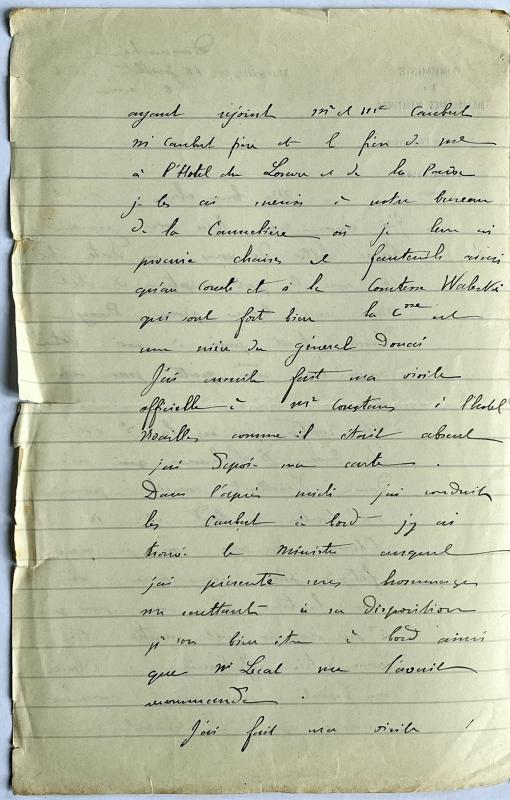 ayant rejoint Mr et Mme Caubut
Mr Caubut père et le frère de Mme
à l'Hotel du Louvre et de la Paix
je les ai menés à notre bureau
de la Cannebière où je leur ai
procuré chaises et fauteuils ainsi
qu'au Comte et à la Comtesse Waleski
qui sont fort bien la Csse est
une nièce du général Douai
J'ai ensuite fait ma visite
officielle à Mr Constans à l'hotel
Noailles comme il était absent
j'ai déposé ma carte.
Dans l'après midi j'ai conduit
les Caubut à bord j'y ai
trouvé le Ministre auquel
j'ai présenté mes hommages
me mettant à sa disposition
bien être à bord ainsi
que Mr Lecat me l'avait
recommandé.
J'ai fait ma visite